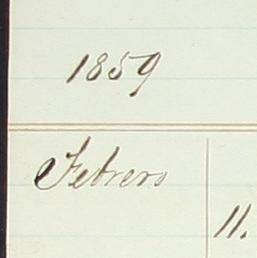 1859
Febrero
11.